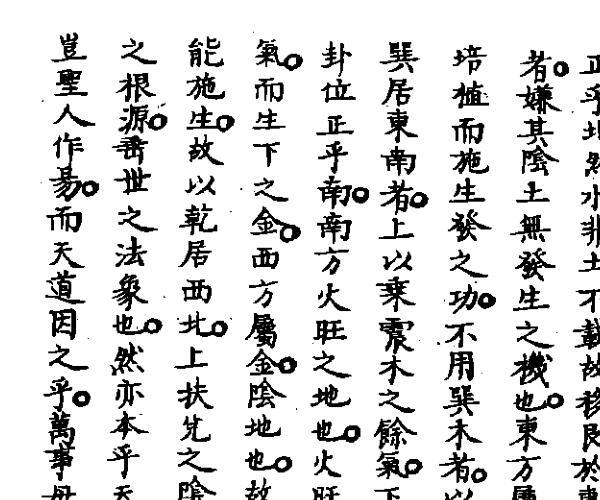 正乎坤然水非土不載故移艮於
者嫌其陰土無發生之機也東方屬
培植而施生發之功不用巽木者以
巽居東南者上以乗震木之餘氣下
卦位正乎南南方火旺之地也火旺
氣而生下之金西方屬金陰地也故
能施生故以乾居西北上扶兌之陰
之根源垂世之法象也然亦本乎天
豈聖人作易而天道因之乎萬事